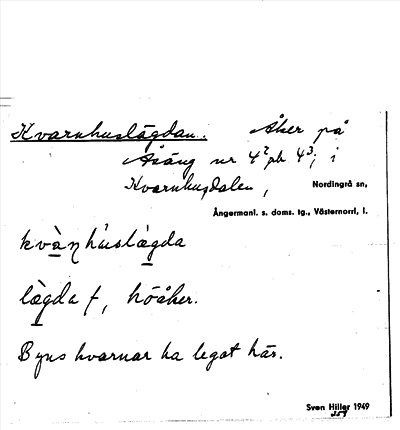 Kvarnhuslägdan. Åker på
Åsäng nr 4² på 4³, i
Kvarnhusdalen, Nordingrå sn,
Ångermanl. s. doms. tg., Västernorrl. l.
kvàn̥hùslàgda
làgda f, höåker.
Byns kvarnar ha legat här.
Sven Hiller 1949